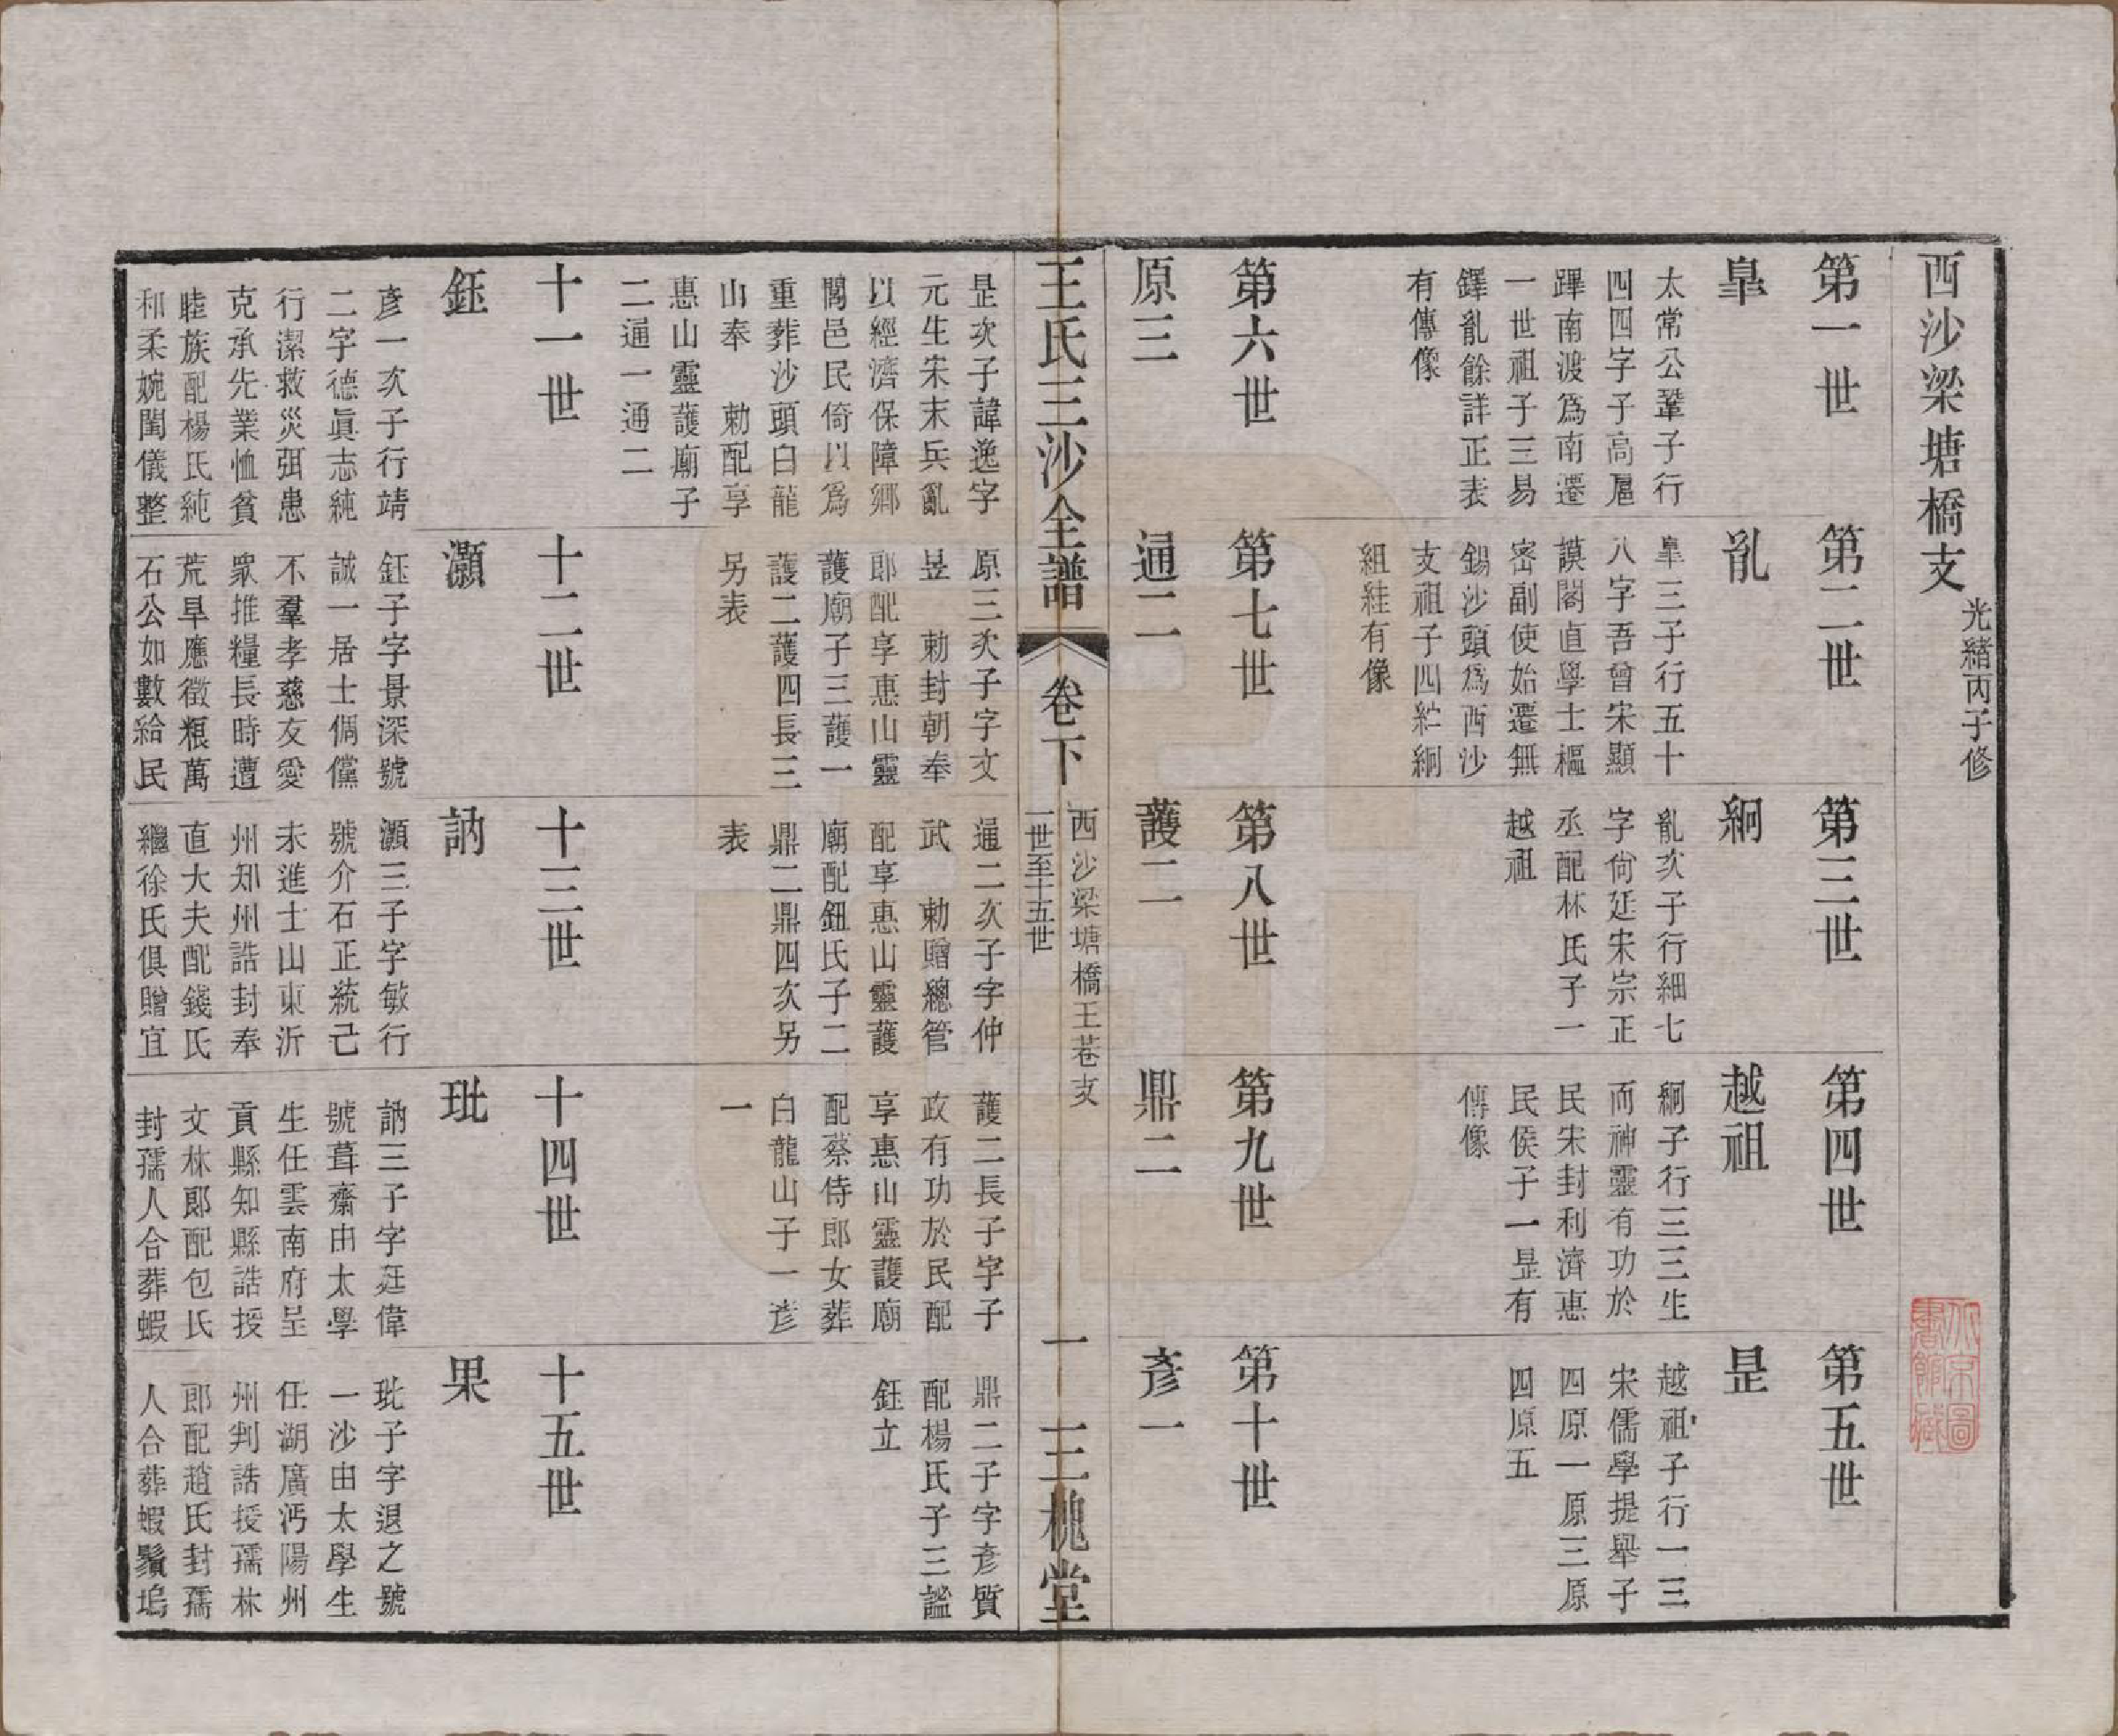 西沙梁塘橋支
光緒丙子修
第一世
臯
太常公鞏子行
四四字子高扈
蹕南渡爲南遷
一世祖子三易
鐸亂餘詳正表
有傳像
第二世
亂
臯三子行五十
八字吾曾宋顯
謨閣直學士樞
密副使始遷無
錫沙頭爲西沙
支祖子四 絅
組絓有像
第三世
絅
亂次子行細七
字尙廷宋宗正
丞配林氏子一
越祖
第四世
越祖
絅子行三三生
而神靈有功於
民宋封利濟惠
民侯子一昰有
傳像
第五世
昰
越祖子行一三
宋儒學提舉子
四原一原三原
四原五
第六世
原三
第七世
通二
第八世
護二
第九世
鼎二
第十世
彥一
王氏三沙全譜
卷下
西沙梁塘橋王巷支
一世至十五世
一
三槐堂
昰次子諱逸字
元生宋末兵亂
以經濟保障鄉
閭邑民倚以爲
重葬沙頭白龍
山奉 勅配享
惠山靈護廟子
二通一通二
原三次子字文
昱 勅封朝奉
郎配享惠山靈
護廟子三護一
護二護四長三
另表
通二次子字仲
武 勅贈總管
配享惠山靈護
廟配鈕氏子二
鼎二鼎四次另
表
護二長子字子
政有功於民配
享惠山靈護廟
配蔡侍郎女葬
白龍山子一彥
一
鼎二子字彥質
配楊氏子三謐
鈺立
十一世
鈺
彥一次子行靖
二字德眞志純
行潔救災弭患
克承先業恤貧
睦族配楊氏純
和柔婉閨儀整
十二世
灝
鈺子字景深號
誠一居士倜儻
不羣孝慈友愛
衆推糧長時遭
荒旱應徵粮萬
石公如數給民
十三世
訥
灝三子字敏行
號介石正統己
未進士山東沂
州知州誥封奉
直大夫配錢氏
繼徐氏俱贈宜
十四世
玭
訥三子字廷偉
號葺齋由太學
生任雲南府呈
貢縣知縣誥授
文林郎配包氏
封孺人合葬蝦
十五世
果
玭子字退之號
一沙由太學生
任湖廣沔陽州
州判誥授孺林
郎配趙氏封孺
人合葬蝦鬚塢